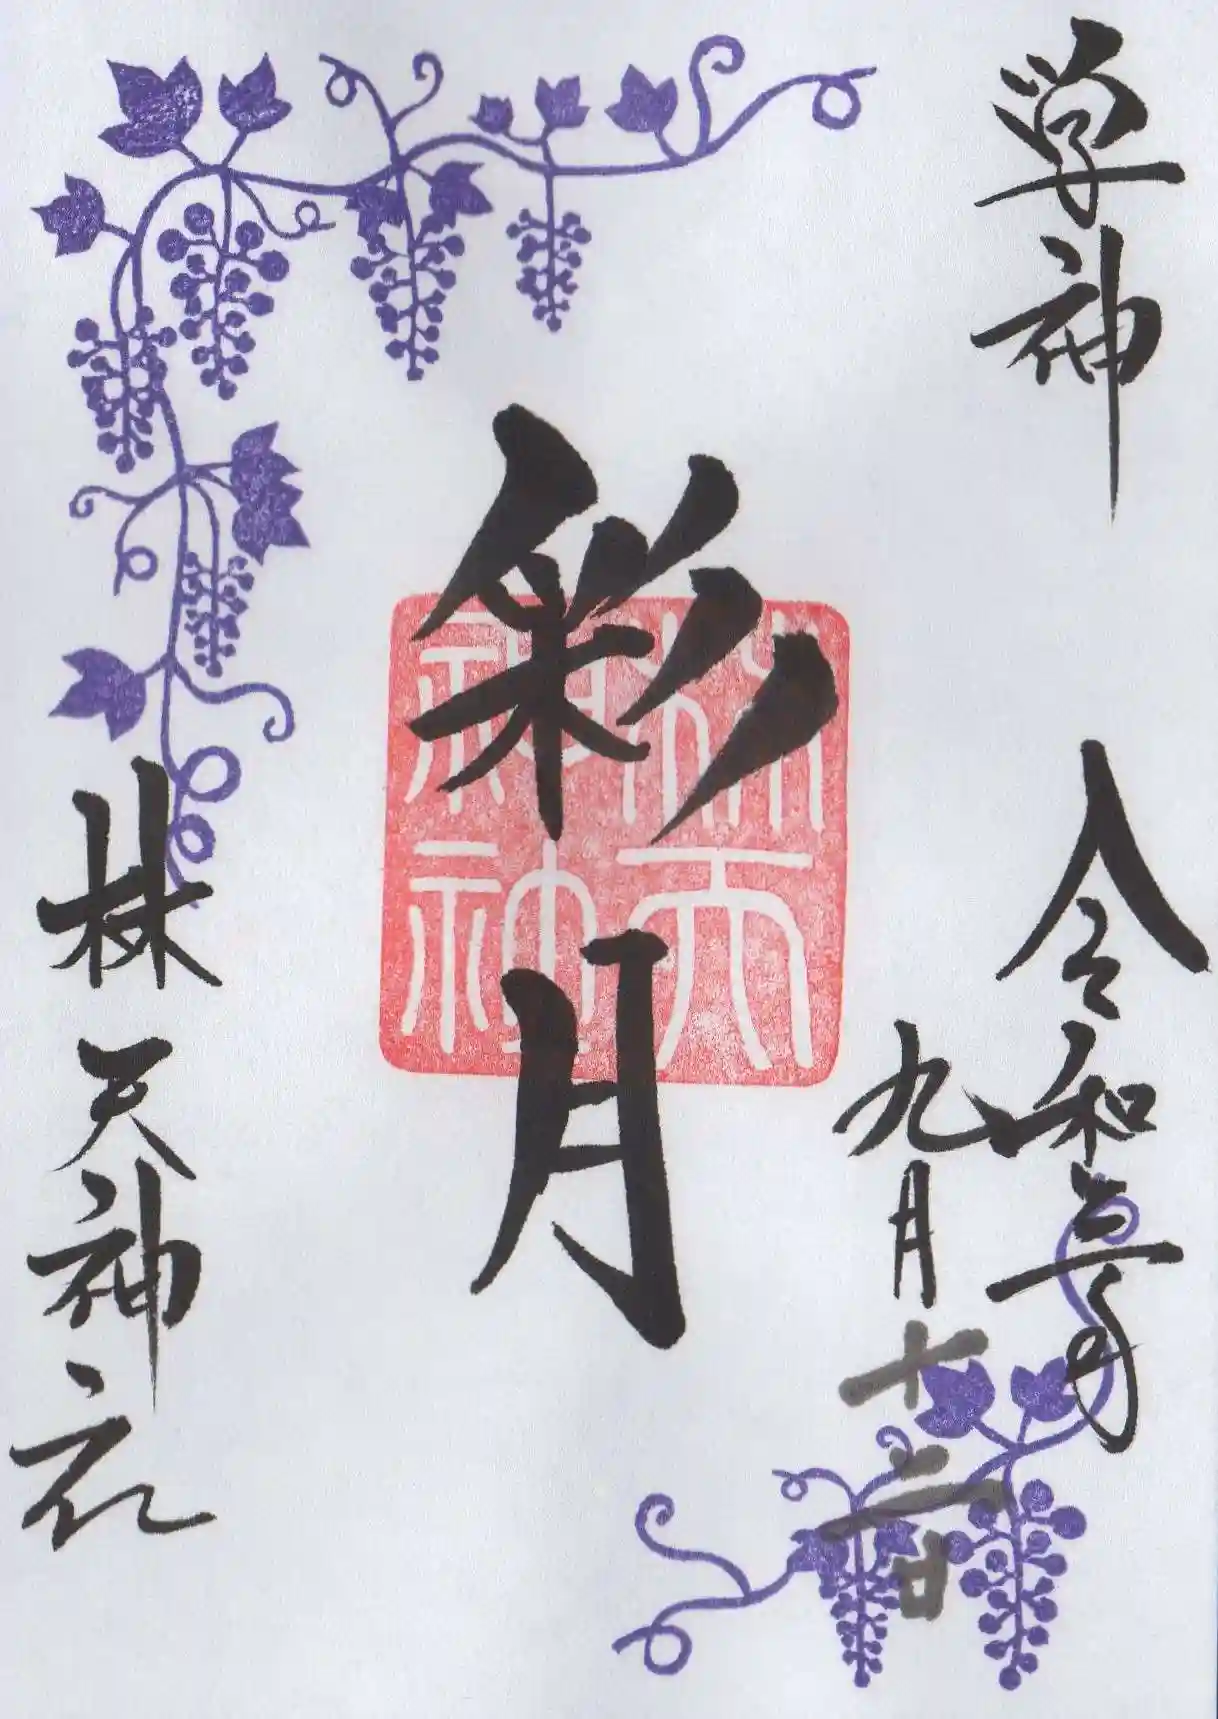 学神
令和三年
九月十二日
彩月
林天神社
林天
神社